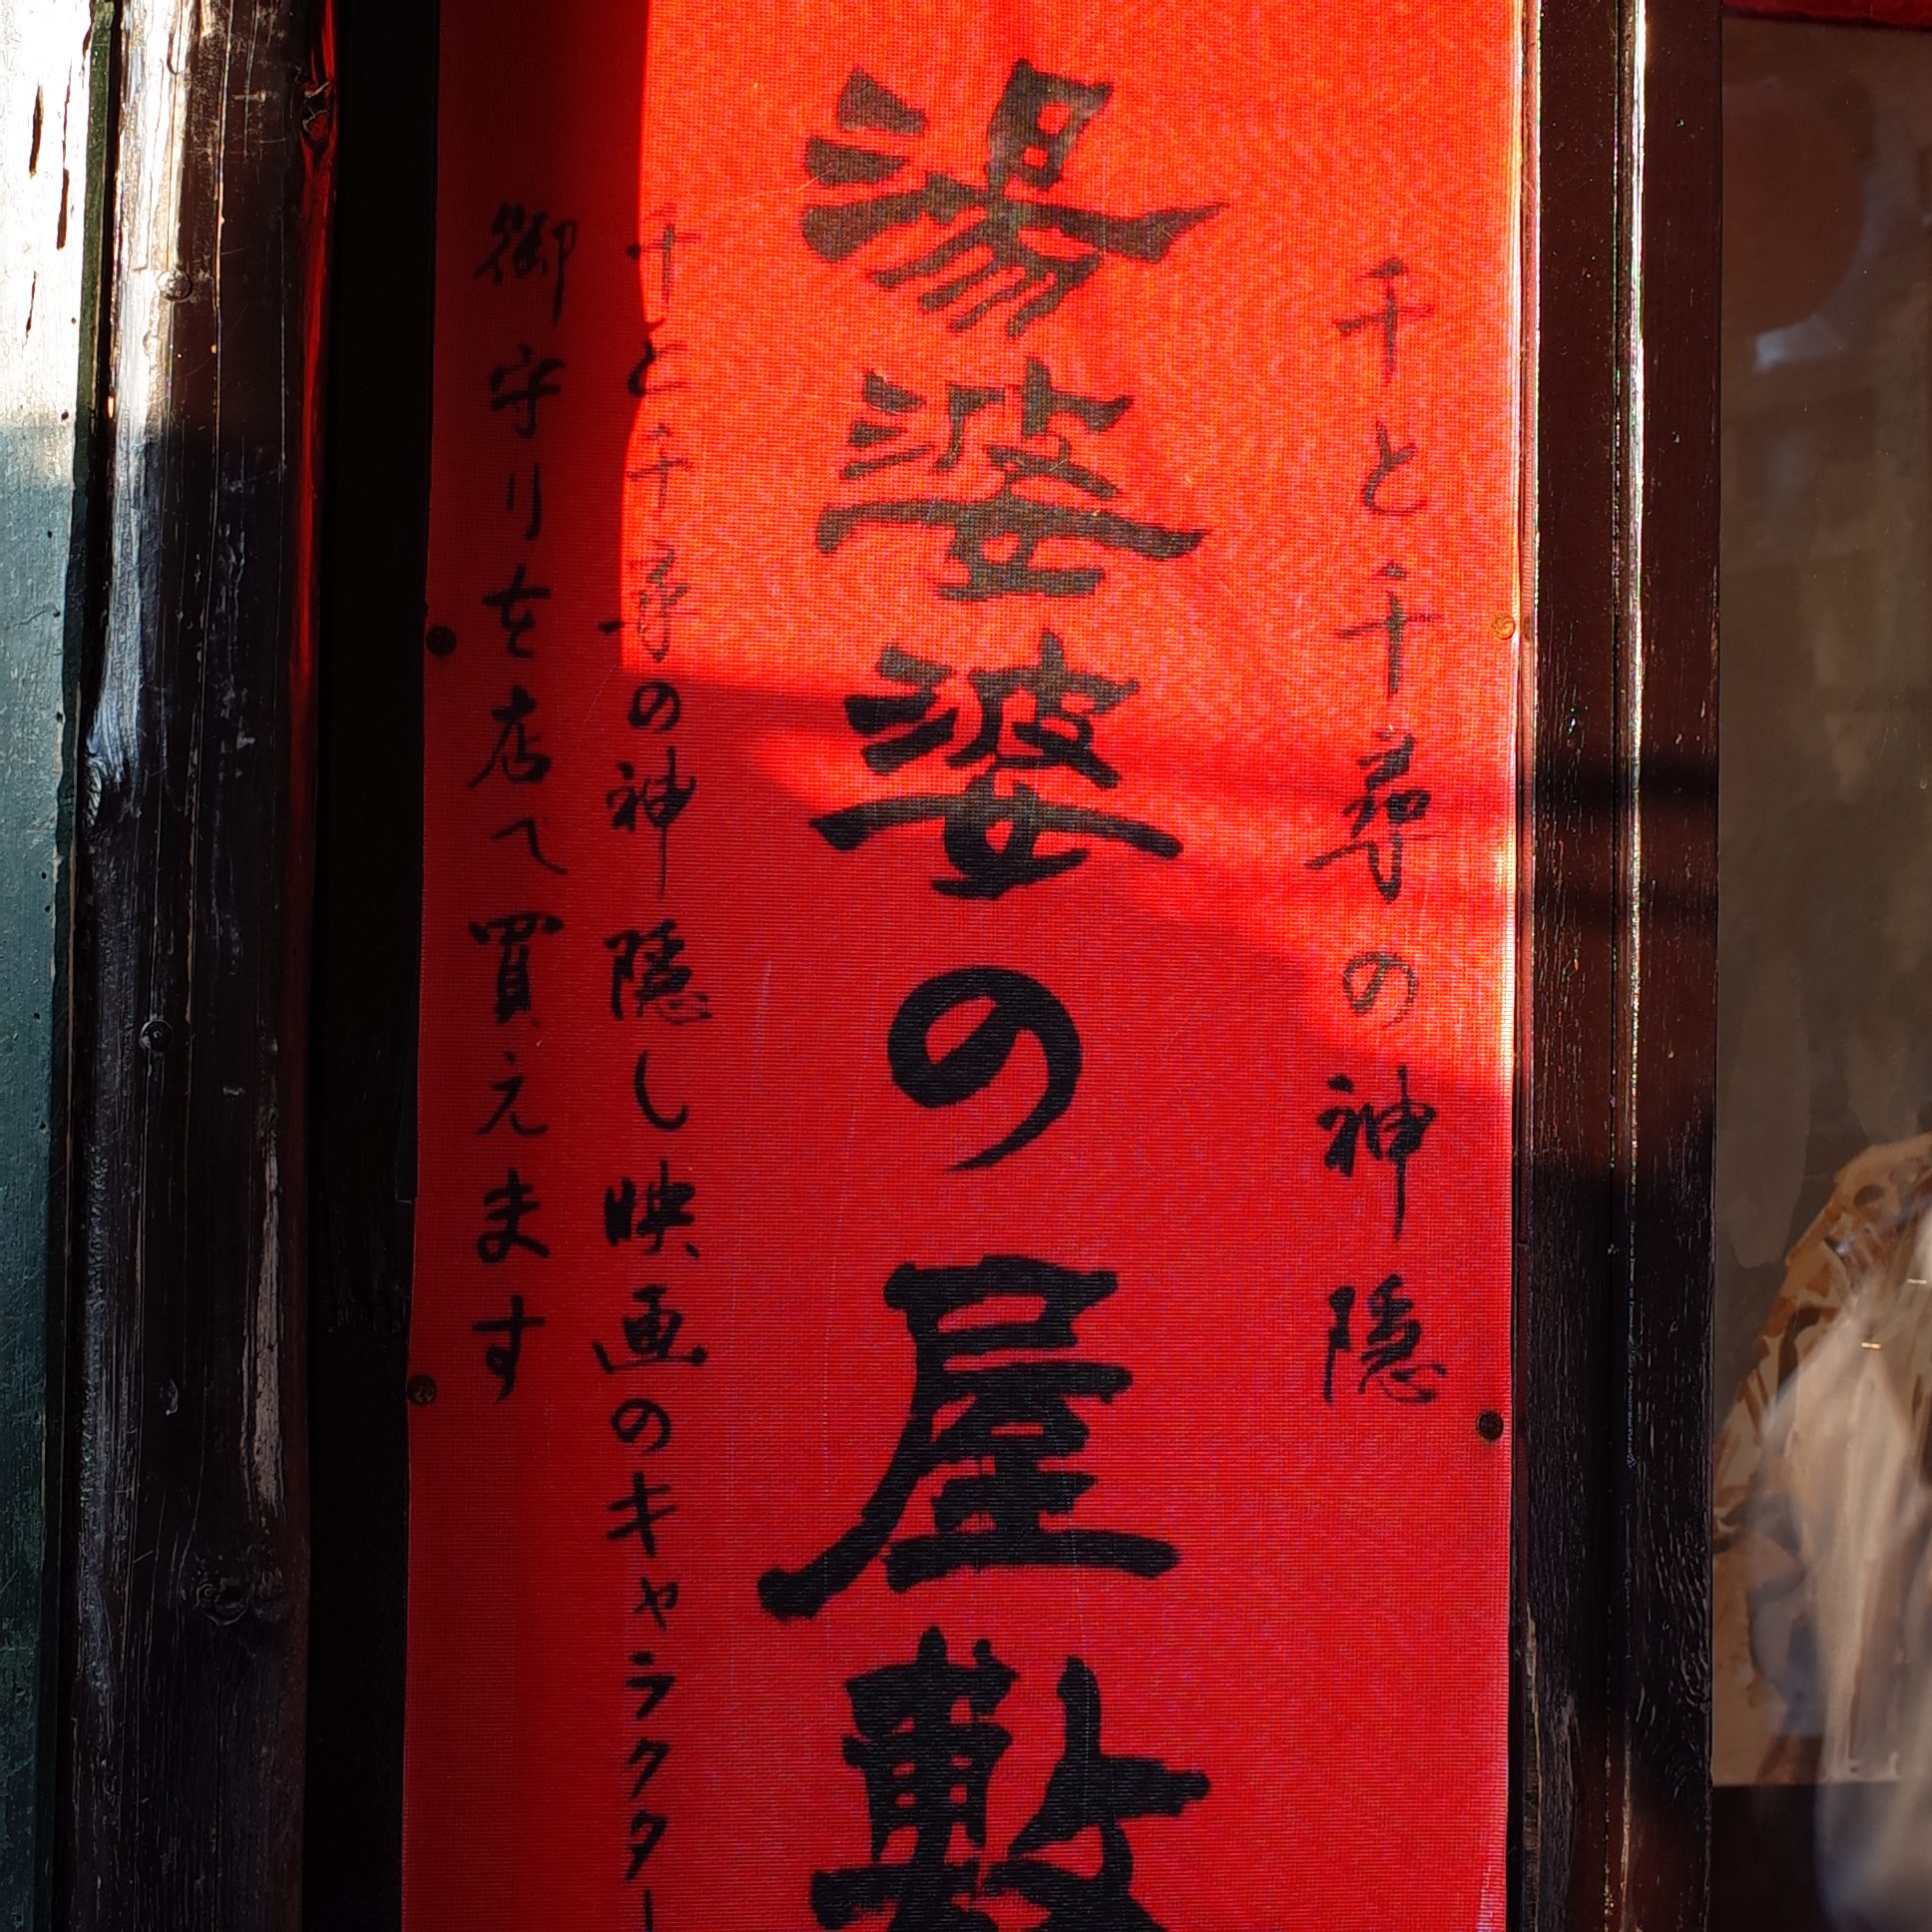 千と千尋の神隠
湯婆婆の屋敷
千と千尋の神隠し映画のキャラクター
御守りを店で買えます